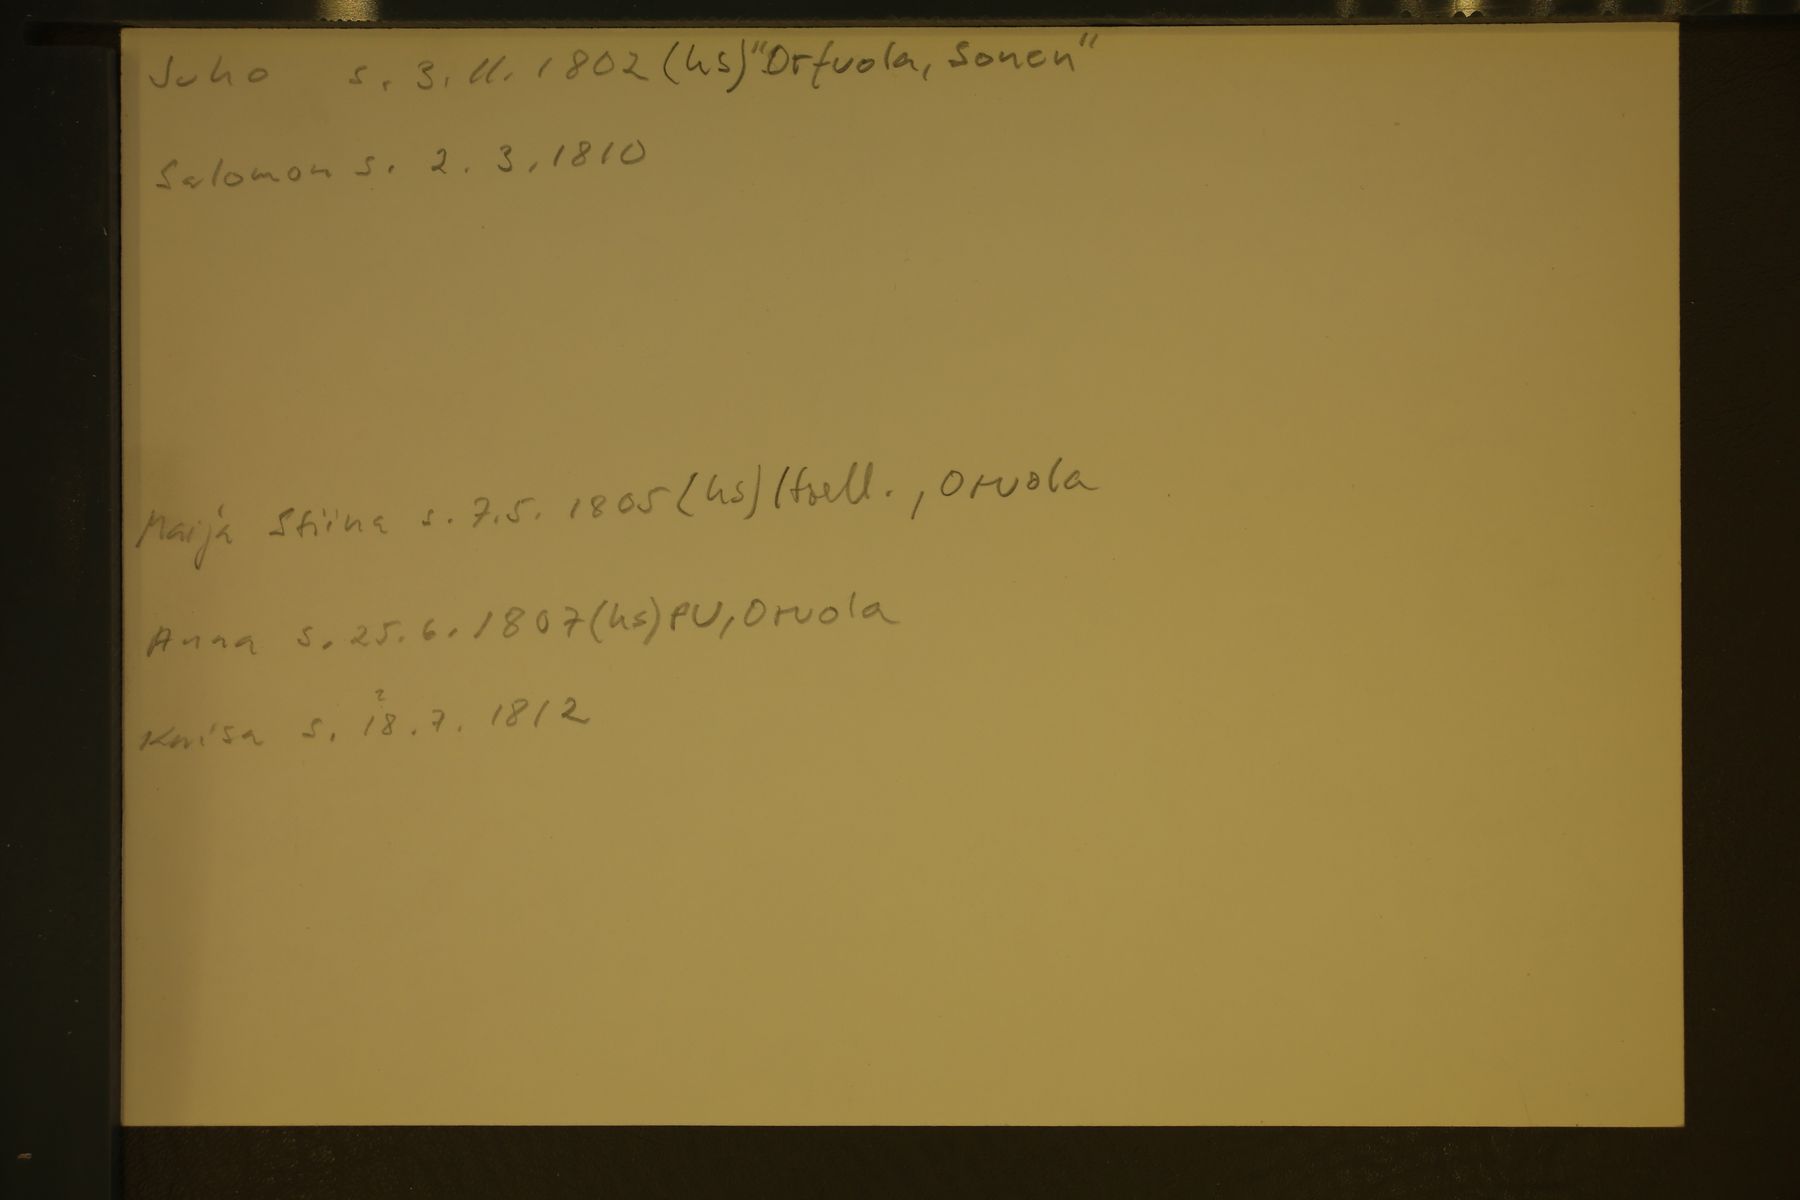 Juho s. 3.11.1802 (hs) "Orfvola, Sonen"
Salomon s. 2.3.1810
Maija Stiina s. 7.5.1805 (hs) , Orvola
Anna s. 25.6.1807 (hs) PU, Orvola
?
Kaisa s. 18.7.1812